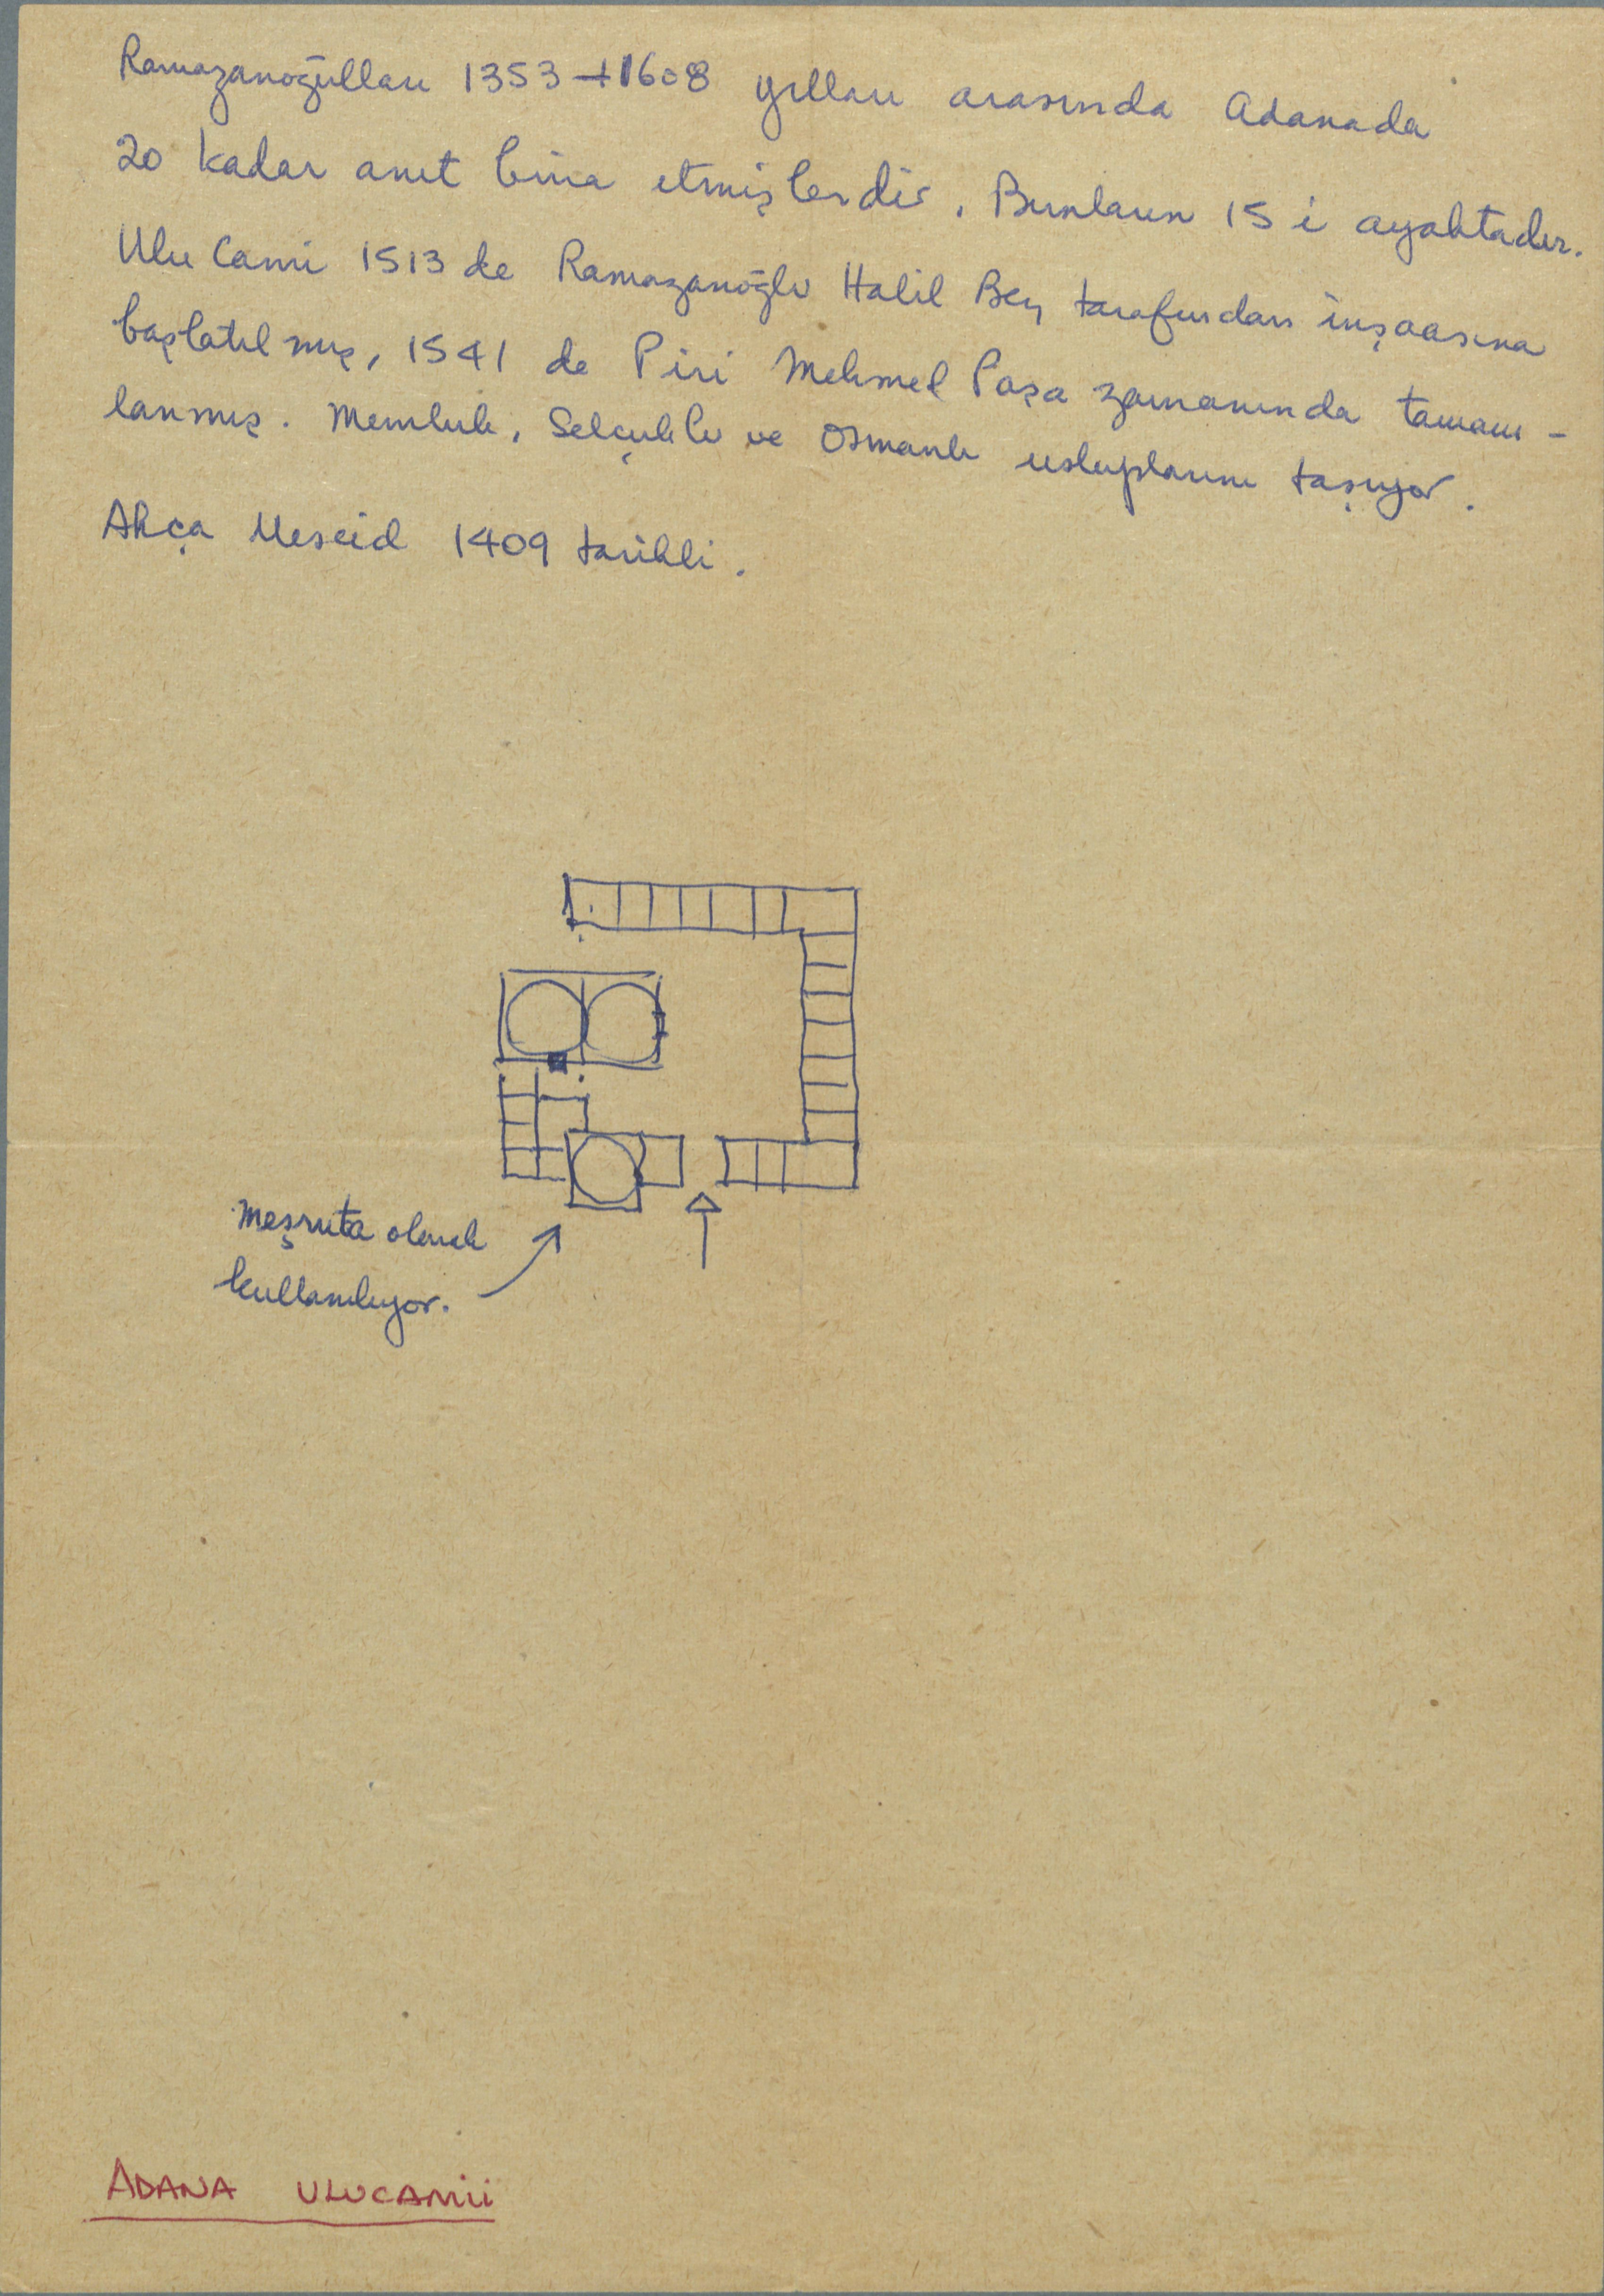 Ramazanoğulları 1353-1608 yılları arasında Adanada
20 kadar anıt bina etmişlerdir. Bunların 15 i ayaktadır.
Ulu Cami 1513 de Ramazanoğlu Halil Bey tarafından inşaasına
başlatılmış, 1541 de Piri Mehmed Paşa zamanında tamam-
lanmış. Memluk, Selçuklu ve Osmanlı usluplarını taşıyor.
Akça Mescid 1409 tarihli.
meşruta olarak
kullanılıyor.
ADANA ULUCAMii